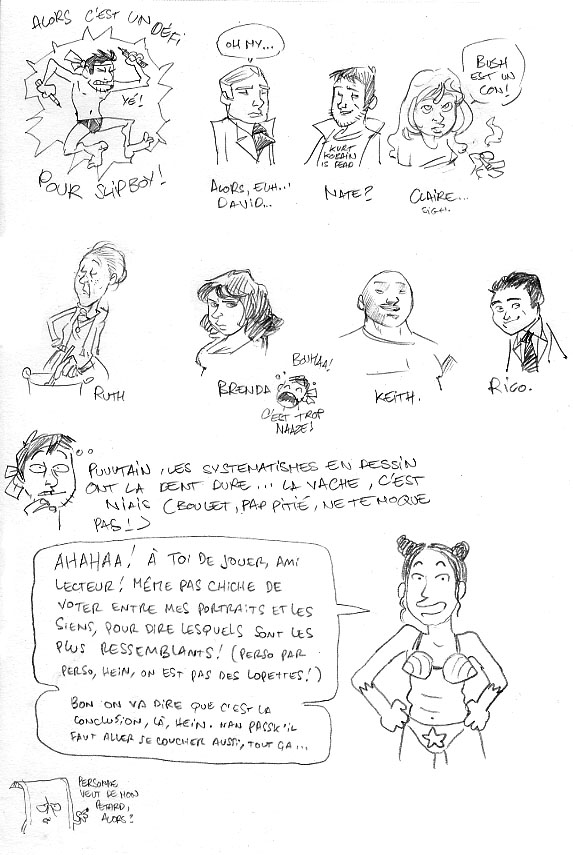 ALORS C'EST UN DÉFI
YÉ!
POUR SLIPBOY!
OH MY...
ALORS, EUH...
DAVID...
KURT
KOBAIN
IS DEAD
NATE?
BUSH
EST UN
CON!
CLAIRE...
SIGH.
RUTH
BRENDA
BOUHAA!
C'EST TROP
NAAZE!
KEITH.
RICO.
PUUUTAIN, LES SYSTEMATISMES EN DESSIN
ONT LA DENT DURE... LA VACHE, C'EST
NIAIS (BOULET, PAR PITIÉ, NE TE MOQUE
PAS!)
AHAHAA! À TOI DE JOUER, AMI
LECTEUR! MÊME PAS CHICHE DE
VOTER ENTRE MES PORTRAITS ET LES
SIENS, POUR DIRE LESQUELS SONT LES
PLUS RESSEMBLANTS! (PERSO PAR
PERSO, HEIN, ON EST PAS DES LOPETTES!)
BON ON VA DIRE QUE C'EST LA
CONCLUSION, LÀ, HEIN. NAN PASSK'IL
FAUT ALLER SE COUCHER AUSSI, TOUT ÇA...
PERSONNE
VEUT DE MON
PETARD,
ALORS?